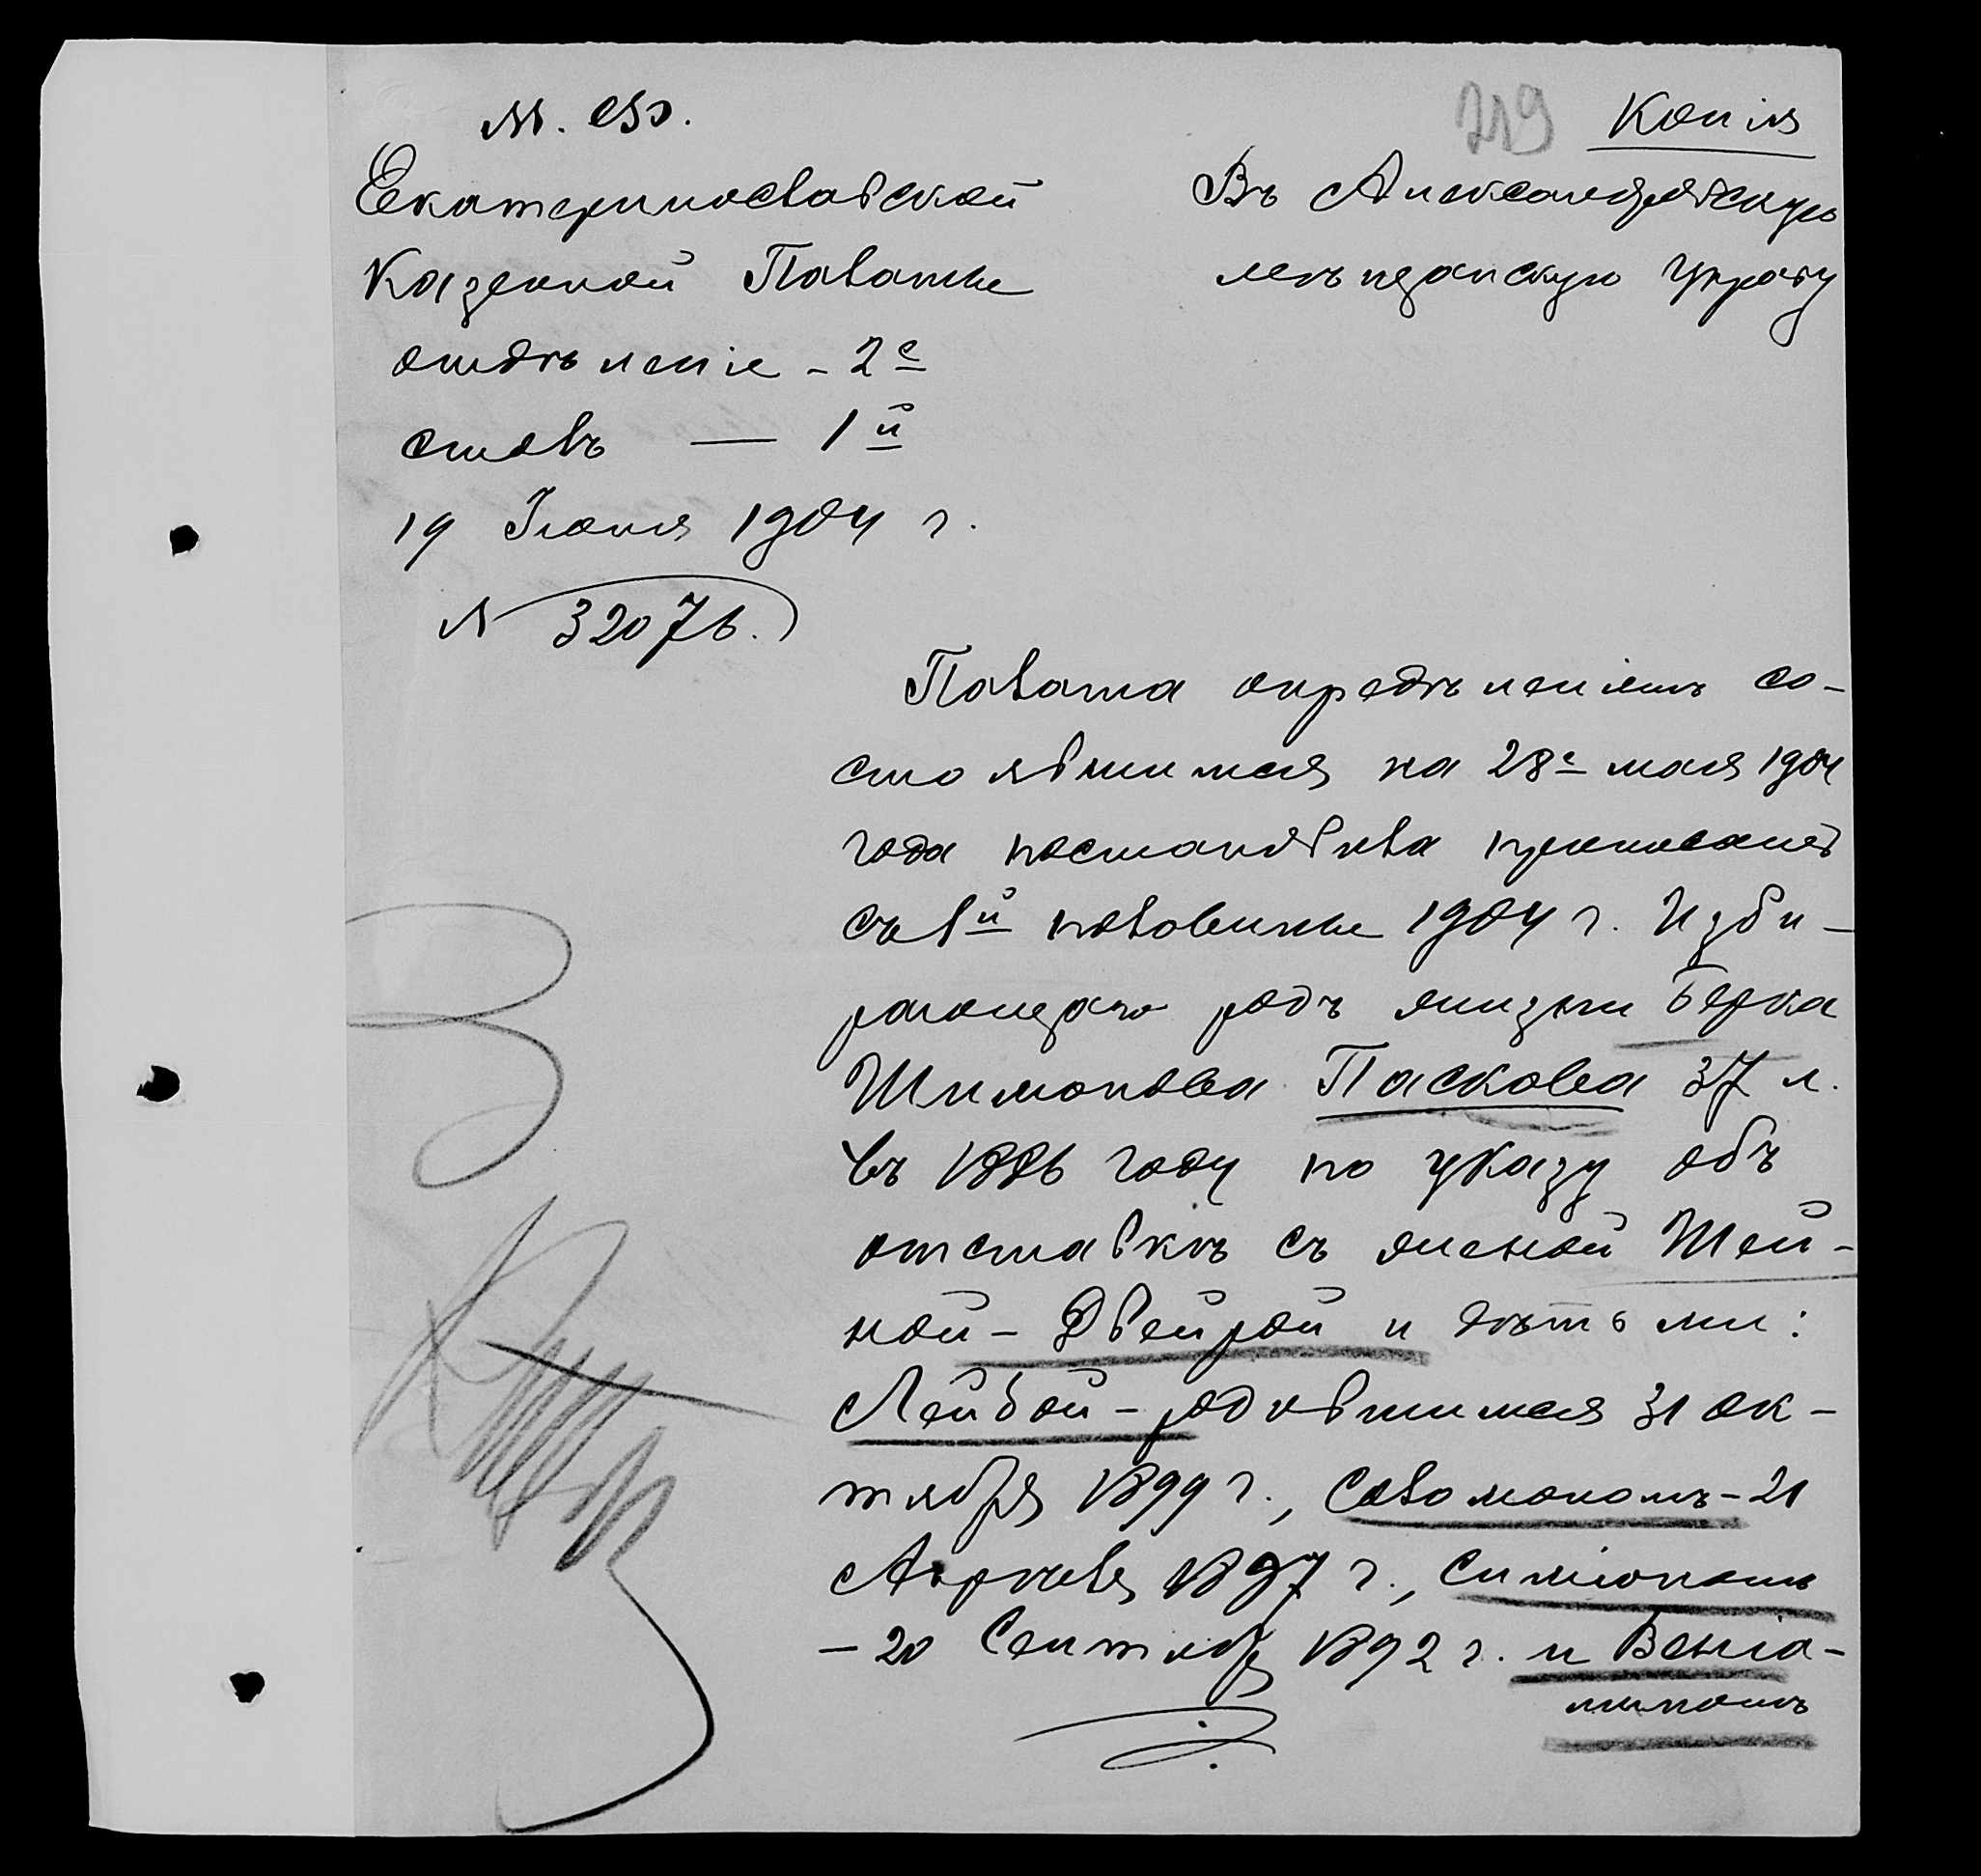 М. Ф.
219
Копія
Екатеринославской
Казенной Палаты
отдѣленіе - 2е
столъ — 1й
19 Іюня 1904 г.
№ 32076.
Въ Александровскую
мѣщанскую Управу
Палата опредѣленіемъ со-
стоявшимся на 28е мая 1904
года постановила причислить
съ 1й половины 1904 г. Изби-
рающаго родъ жизни Берка
Шимонова Паскова 37 л.
въ 1886 году по указу объ
отставкѣ съ женой Шей-
ной - Двейрой и дѣтьми:
Лейбой - родившимся 31 ок-
тября 1899 г., Соломономъ - 21
Апрѣля 1897 г., Симіономъ
- 20 Сентябр 1892 г. и Веніа-
миномъ